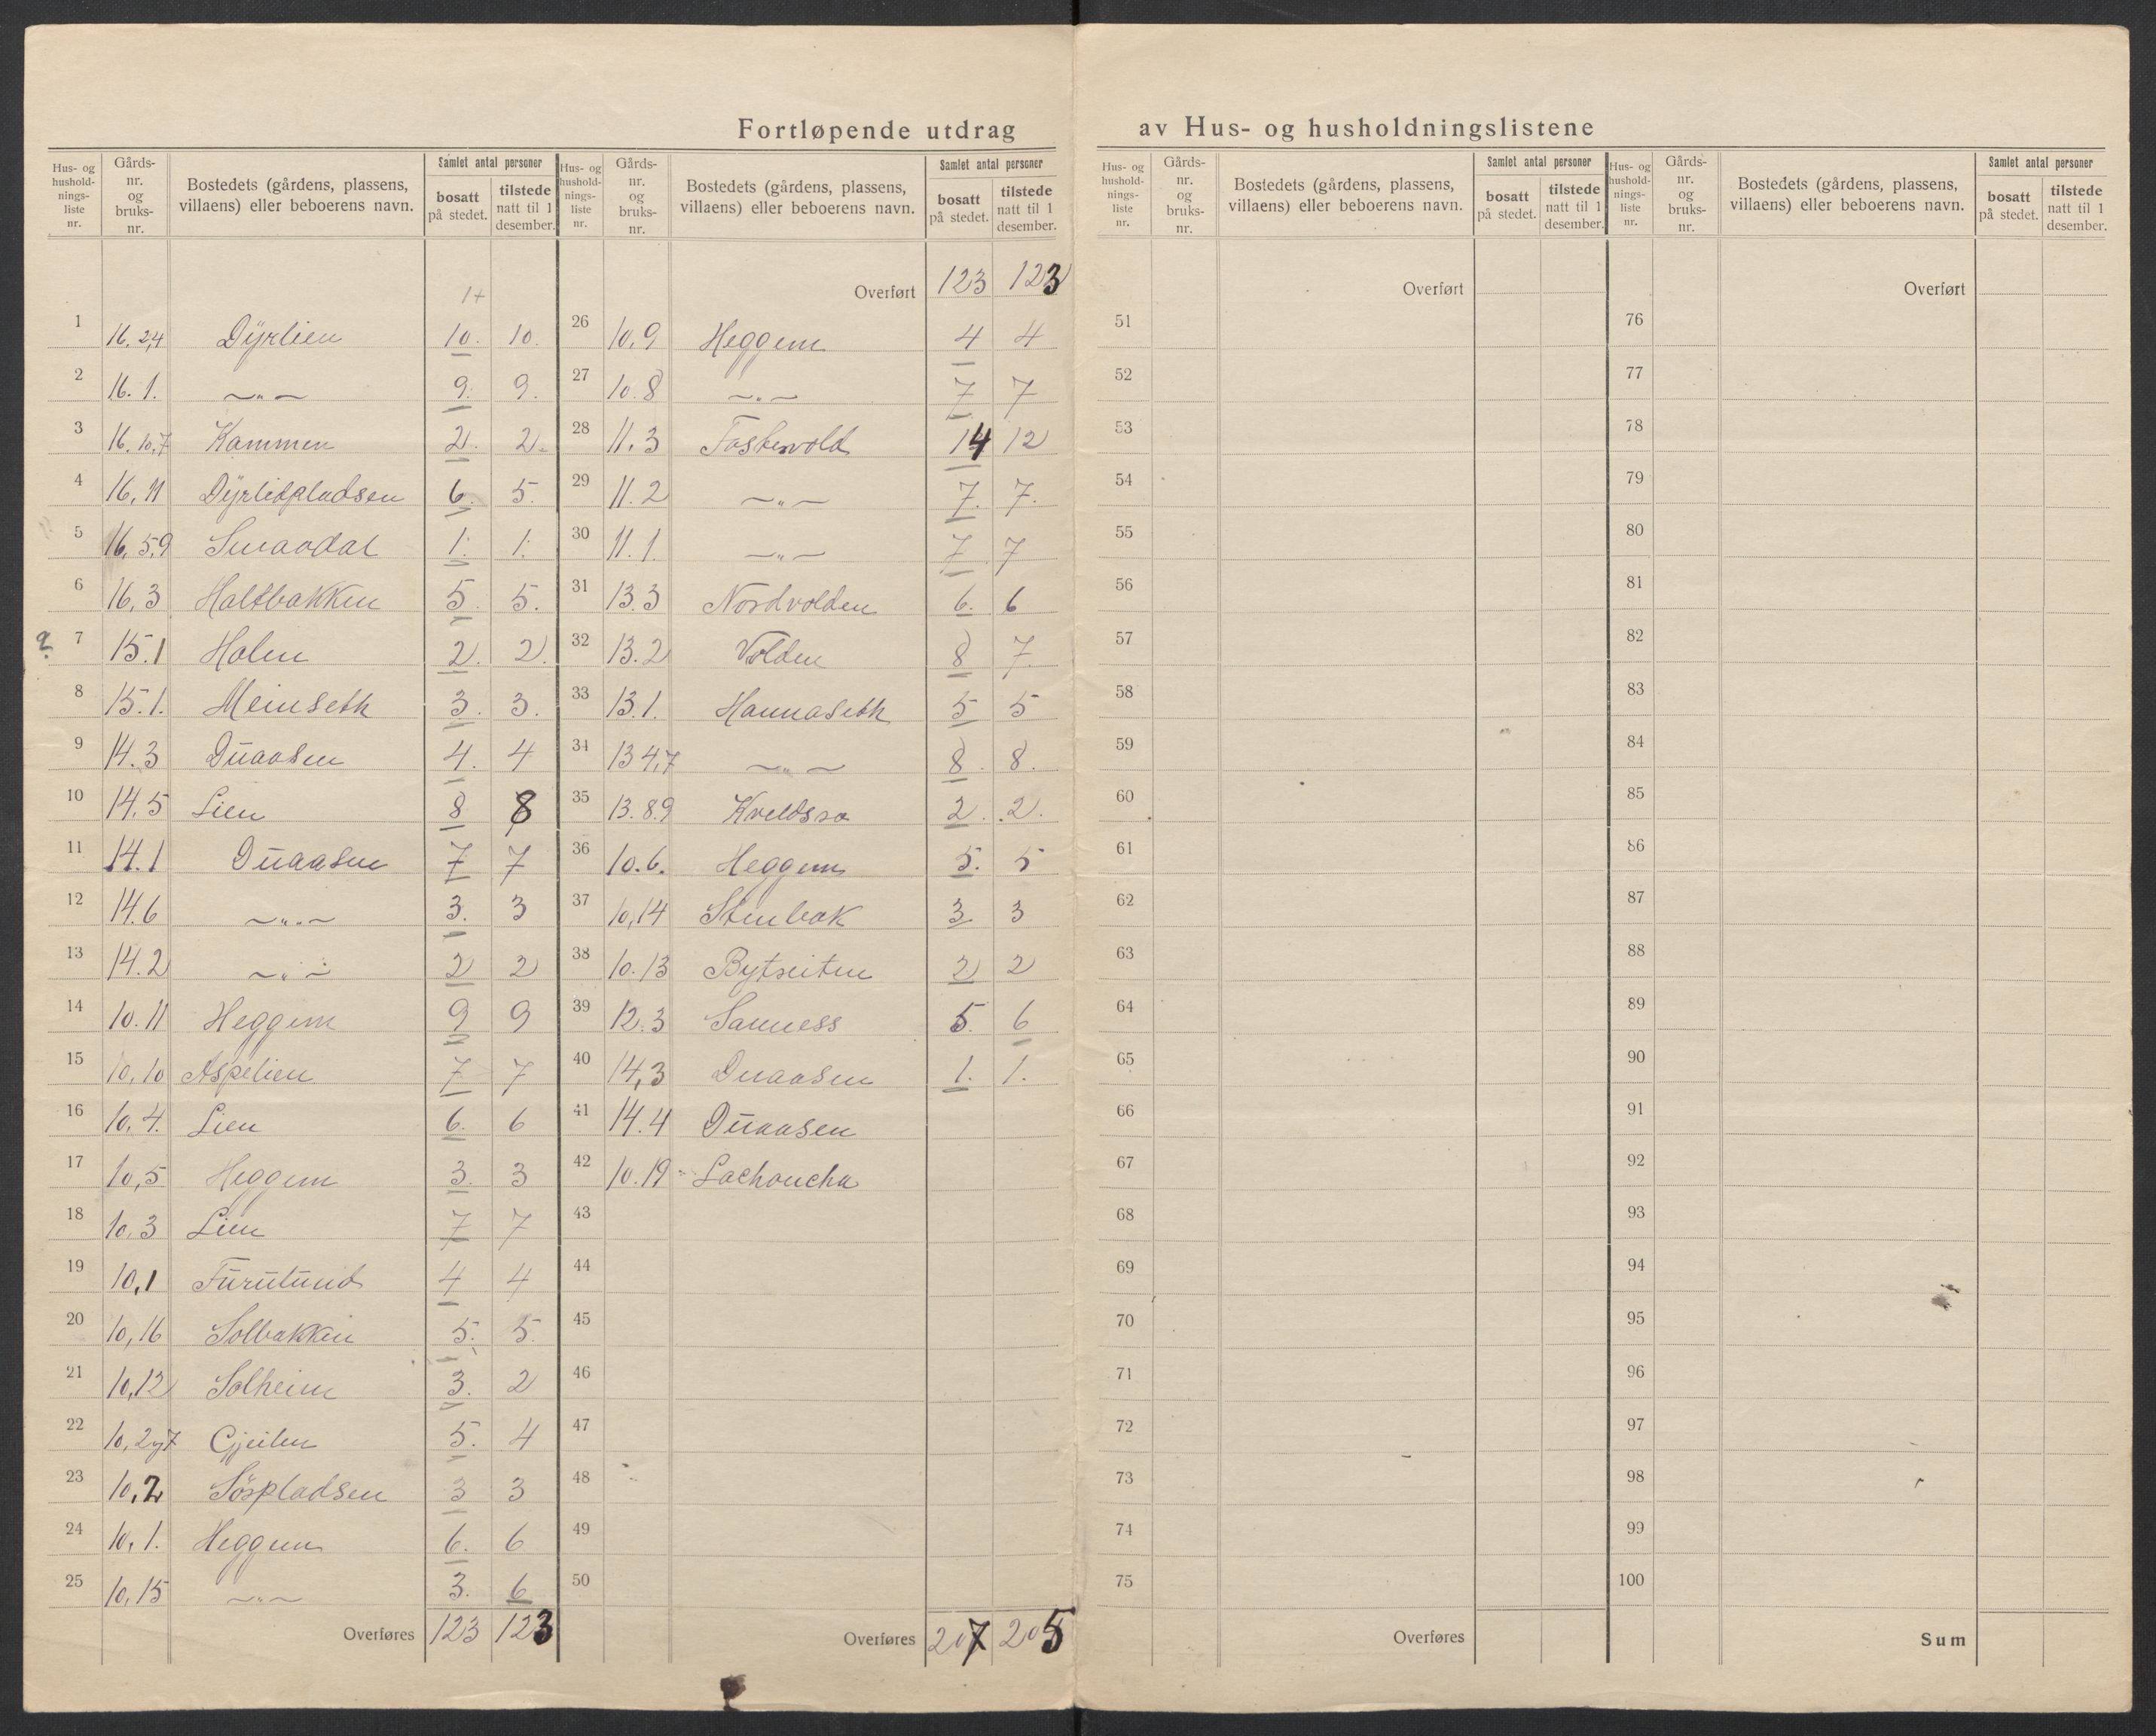 Fortløpende utdrag av Hus- og husholdningslistene
Hus- og hushold- nings- liste nr. | Gårds- nr. og bruks- nr. | Bostedets (gårdens, plassens, villaens) eller beboerens navn. | Samlet antal personer | bosatt på stedet. | tilstede natt til 1 desember.
Hus- og hushold- nings- liste nr. | Gårds- nr. og bruks- nr. | Bostedets (gårdens, plassens, villaens) eller beboerens navn. | Samlet antal personer | bosatt på stedet. | tilstede natt til 1 desember.
Hus- og hushold- nings- liste nr. | Gårds- nr. og bruks- nr. | Bostedets (gårdens, plassens, villaens) eller beboerens navn. | Samlet antal personer | bosatt på stedet. | tilstede natt til 1 desember.
Hus- og hushold- nings- liste nr. | Gårds- nr. og bruks- nr. | Bostedets (gårdens, plassens, villaens) eller beboerens navn. | Samlet antal personer | bosatt på stedet. | tilstede natt til 1 desember.
1+
1 16. 2,4 Dyrlien 10. 10.
2 16. 1. —〃— 9. 9.
3 16. 10,7 Kammen 2. 2.
4 16, 11 Dyrlidpladsen 6. 5.
5 16, 5,9 Smaadal 1. 1.
6 16, 3 Haltbakken 5. 5.
? 7 15.1 Holen 2. 2.
8 15.1. Meinseth 3. 3.
9 14.3 Duaasen 4. 4
10 14.5 Lien 8 8
11 14.1 Duaasen 7 7
12 14.6 —〃— 3. 3
13 14.2 —〃— 2 2
14 10.11 Heggem 9 9
15 10,10 Aspelien 7 7
16 10,4. Lien 6. 6
17 10,5 Heggem 3. 3
18 10,3 Lien 7 7
19 10,1 Furulund 4 4
20 10,16 Solbakken 5. 5.
21 10,12 Solheim 3. 2
22 10, 2 7 Gjeilen 5. 4
23 10,2 Söspladsen 3 3
24 10,1. Heggem 6. 6
25 10,15 —〃— 3. 6
Overføres 123 123
Overført 123 123
26 10,9 Heggem 4 4
27 10.8 —〃— 7 7
28 11.3 Foskvold 14 12
29 11.2 —〃— 7. 7.
30 11.1. —〃— 7 7
31 13.3 Nordvolden 6. 6
32 13.2 Volden 8 7.
33 13.1. Hannaseth 5 5
34 13 4,7 —〃— 8. 8.
35 13.8.9 2. 2.
36 10.6. Heggem 5. 5
37 10,14 Stenbak 3. 3
38 10.13 2 2
39 12.3 Sanness 5. 6
40 14,3 Duaasen 1. 1.
41 14.4 Duaasen
42 10.19 Lachoucha
43
44
45
46
47
48
49
50
Overføres 207 205
Overført
51
52
53
54
55
56
57
58
59
60
61
62
63
64
65
66
67
68
69
70
71
72
73
74
75
Overføres
Overført
76
77
78
79
80
81
82
83
84
85
86
87
88
89
90
91
92
93
94
95
96
97
98
99
100
Sum